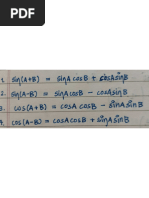 1. sin(A+B) = sinA cosB + cosA sinB
2. sin(A-B) = sinA cosB - cosA sinB
3. cos(A+B) = cosA cosB - sinA sinB
4. cos(A-B) = cosA cosB + sinA sinB